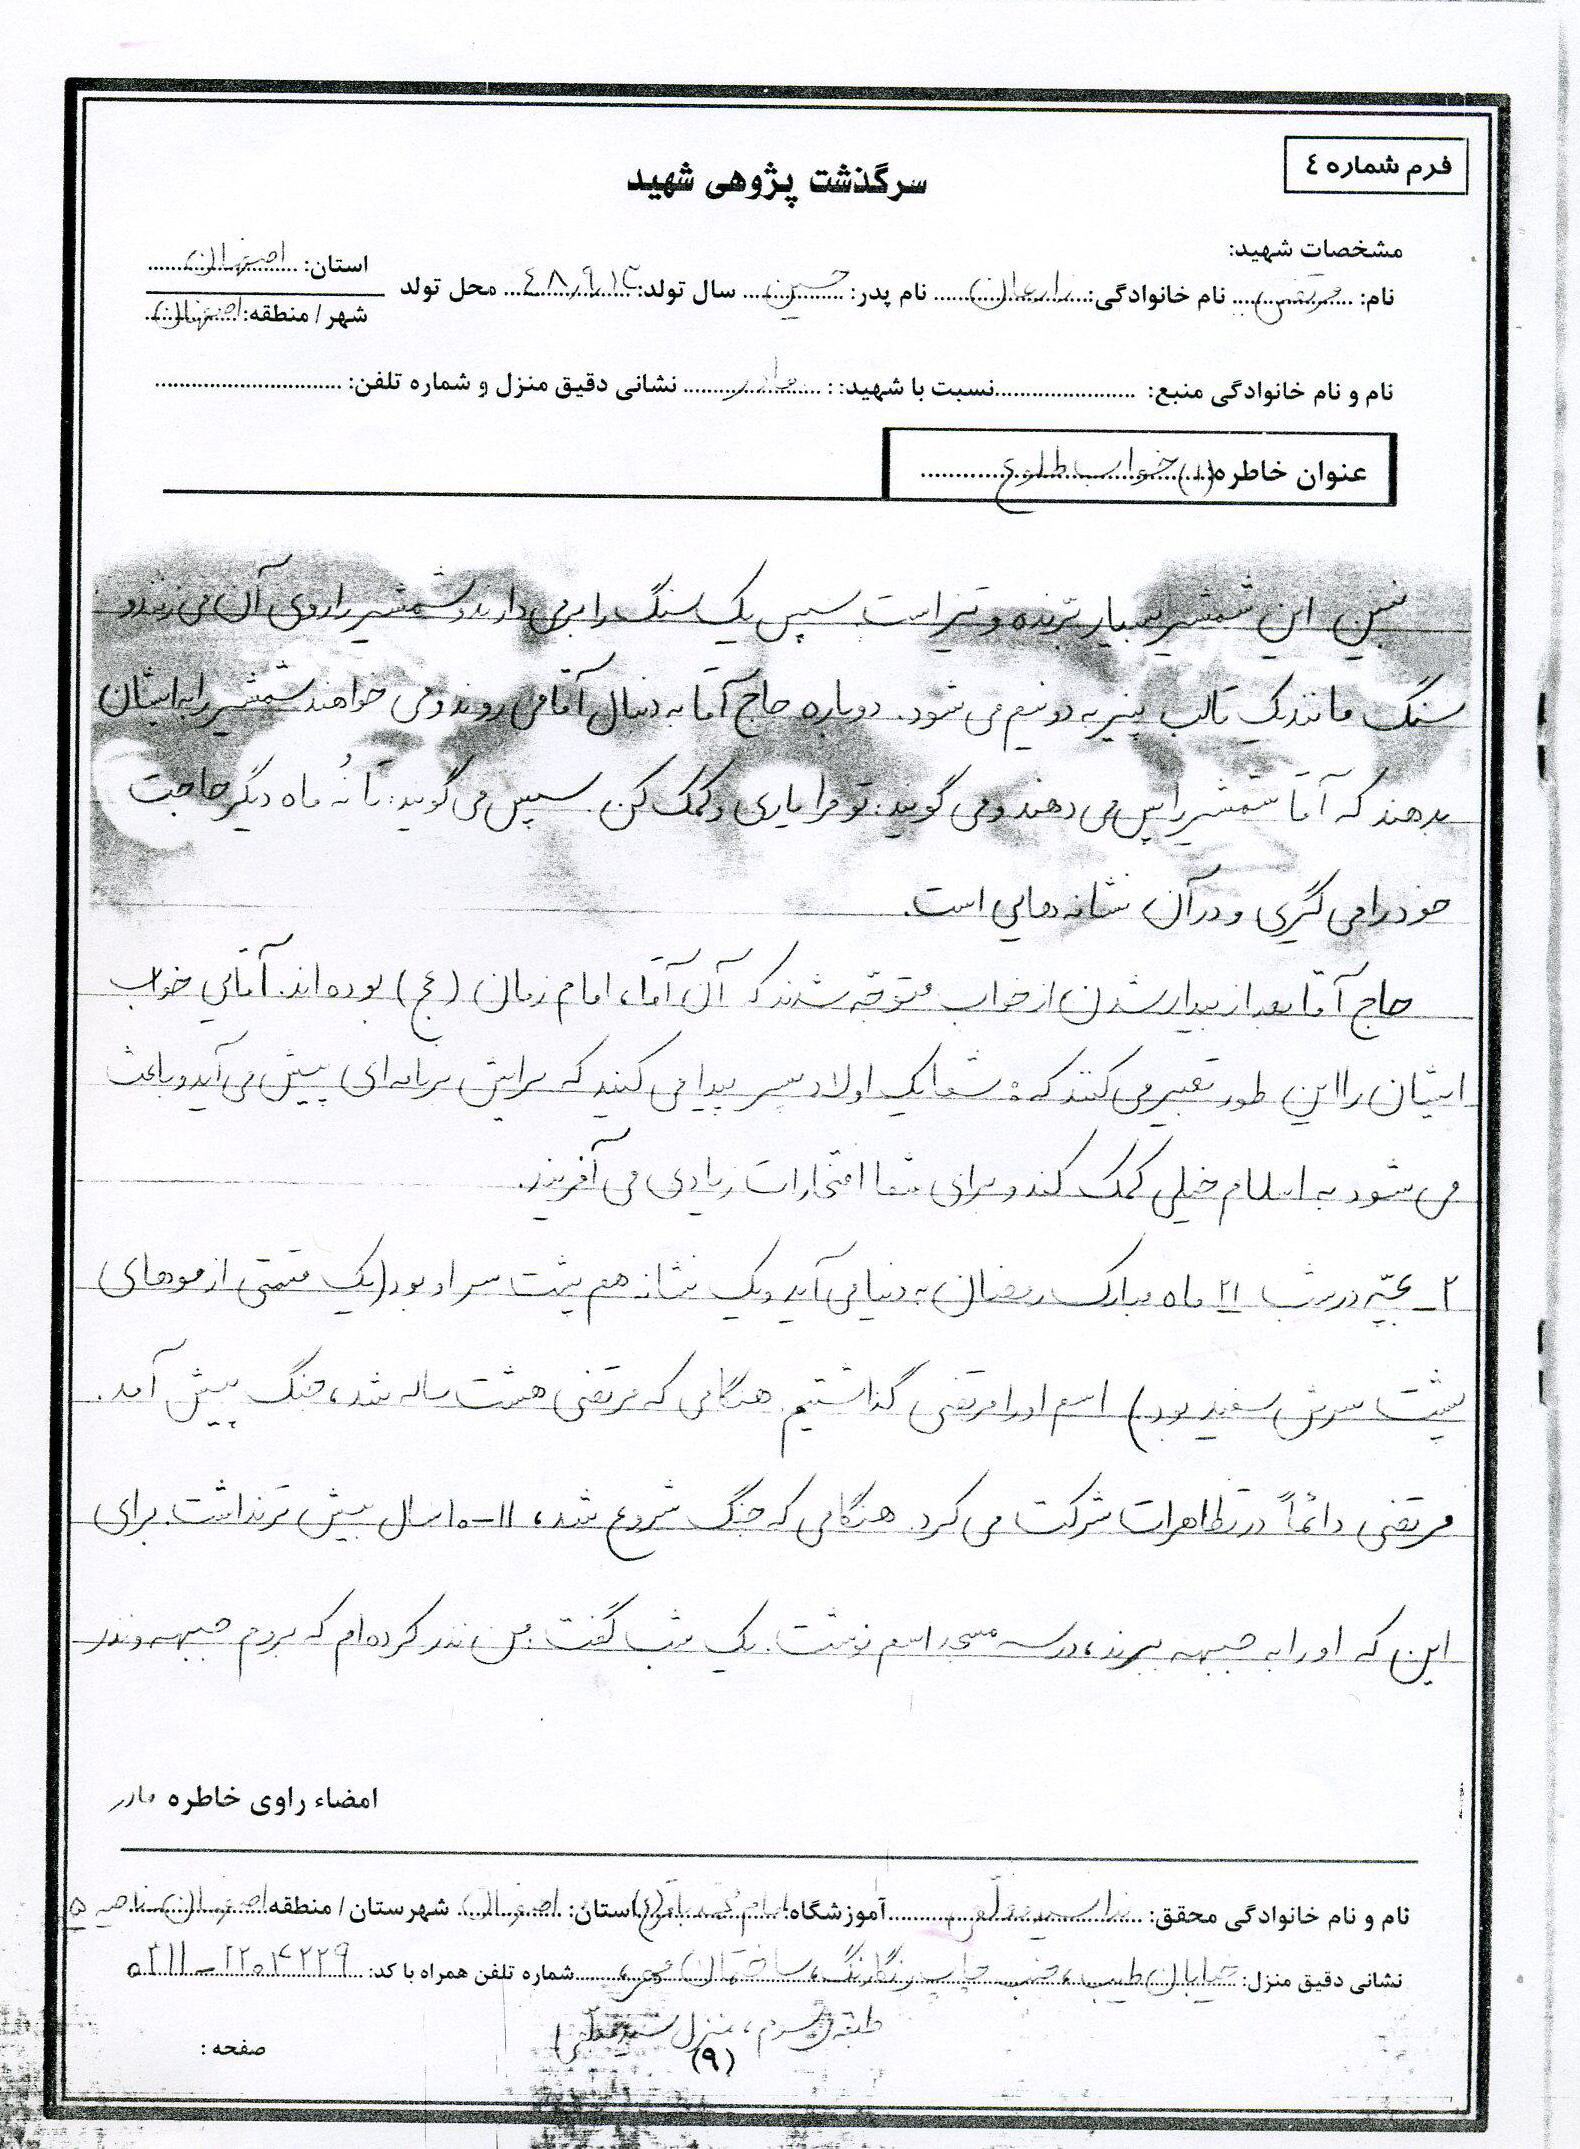 فرم شماره ٤
سرگذشت پژوهی شهید
مشخصات شهید:
نام: مرتضی نام خانوادگی: زارعان نام پدر: حسین سال تولد: ٤٨,٩,١٢ محل تولد
استان: اصفهان
شهر / منطقه: اصفهان
نام و نام خانوادگی منبع: نسبت با شهید: : مادر نشانی دقیق منزل و شماره تلفن:
عنوان خاطره (١) خواب طلوع
ببین این شمشیر بسیار برّنده و تیز است سپس یک سنگ را برمی دارند و شمشیر را روی آن می زنند و
سنگ مانند یک قالب پنیر به دو نیم می شود. دوباره حاج آقا به دنبال آقا می روند و می خواهند شمشیر را به ایشان
بدهند که آقا شمشیر را پس می دهند و می گویند: تو مرا یاری و کمک کن. سپس می گوید: تا نُه ماه دیگر حاجت
خود را می گیری و در آن نشانه هایی است.
حاج آقا بعد از بیدار شدن از خواب متوجّه شدند که آن آقا، امام زمان (عج) بوده اند. آقایی خواب
ایشان را این طور تعبیر می کنند که: شما یک اولاد پسر پیدا می کنید که برایش برنامه ای پیش می آید و باعث
می شود به اسلام خیلی کمک کند و برای شما افتخارات زیادی می آفریند.
٢_ بچّه در شب ٢١ ماه مبارک رمضان به دنیا می آید و یک نشانه هم پشت سر او بود (یک قسمتی از موهای
پشت سرش سفید بود) اسم او را مرتضی گذاشتیم. هنگامی که مرتضی هشت ساله شد، جنگ پیش آمد.
مرتضی دائماً در تظاهرات شرکت می کرد. هنگامی که جنگ شروع شد، ١١-١٠ سال بیش تر نداشت. برای
این که او را به جبهه ببرند، در مسجد اسم نوشت. یک شب گفت: من نذر کرده ام که بروم جبهه و نذر
امضاء راوی خاطره مادر
نام و نام خانوادگی محقق: آموزشگاه: امام محمد باقر(ع) استان: اصفهان شهرستان / منطقه اصفهان ناحیه ۵
نشانی دقیق منزل: خیابان طیب، جنب چاپ رنگارنگ، ساختمان شماره تلفن همراه با کد: ٠٣١١_٢٢٠٤٢٢٩
طبقه سوم، منزل
(٩)
صفحه :